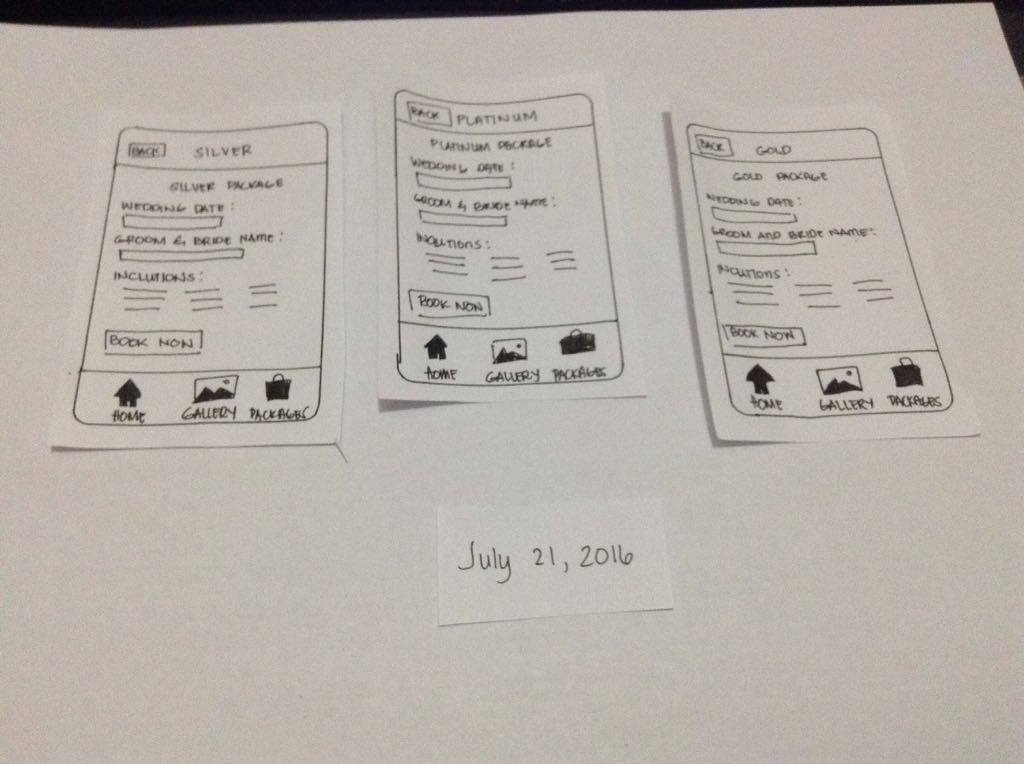 BACK SILVER
SILVER PACKAGE
WEDDING DATE:
GROOM & BRIDE NAME:
INCLUTIONS:
BOOK NOW
HOME GALLERY PACKAGES
BACK PLATINUM
PLATINUM PACKAGE
WEDDING DATE:
GROOM & BRIDE NAME:
INCLUTIONS:
BOOK NOW
HOME GALLERY PACKAGES
BACK GOLD
GOLD PACKAGE
WEDDING DATE:
GROOM AND BRIDE NAME:
INCLUTIONS:
BOOK NOW
HOME GALLERY PACKAGES
July 21, 2016